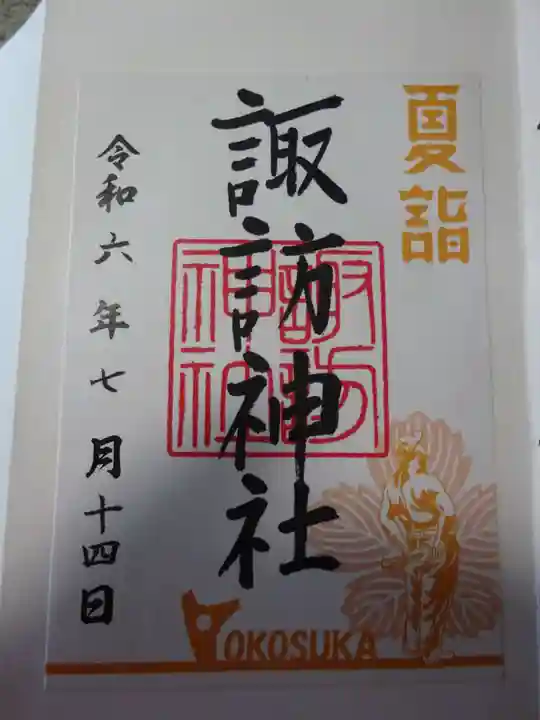 夏詣
諏訪神社
諏訪
神社
令和六年七月十四日
YOKOSUKA